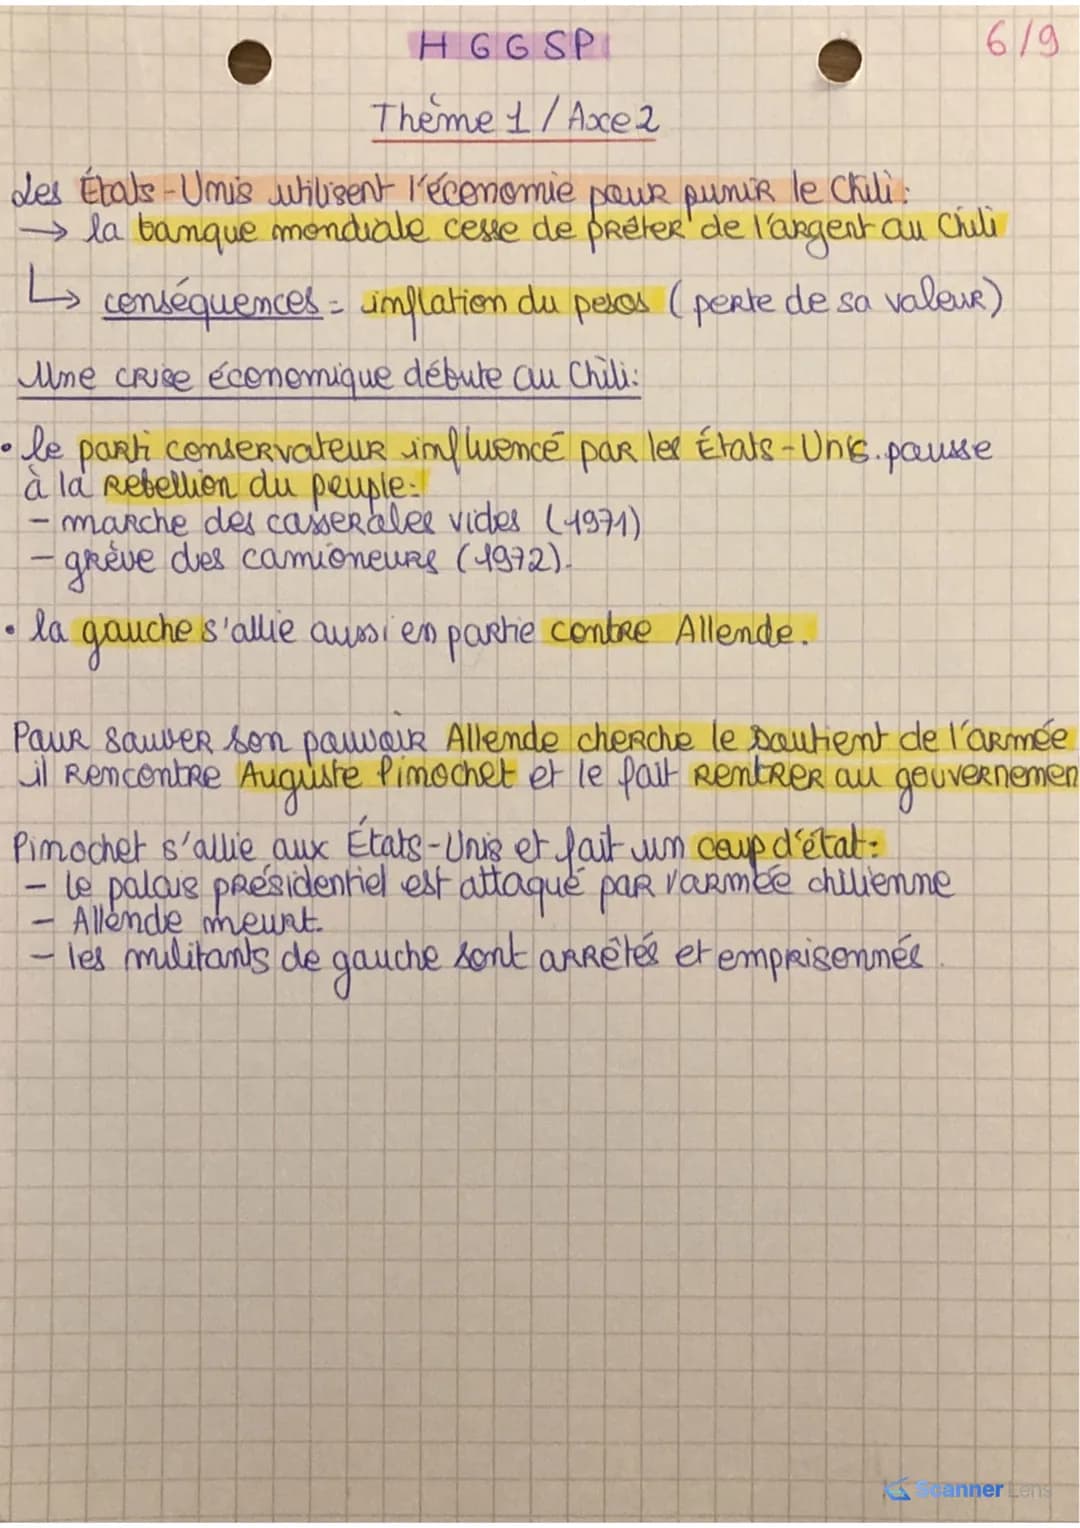 HGGSP
6/9
Thème 1 / Axe 2
Les États-Unis utilisent l'économie pour punir le Chili :
→ la banque mondiale cesse de prêter de l'argent au Chili
↳ conséquences = inflation du pesos (perte de sa valeur)
Une crise économique débute au Chili :
• le parti conservateur influencé par les États-Unis pousse
à la rebellion du peuple :
- marche des casseroles vides (1971)
- grève des camioneurs (1972).
• la gauche s'allie aussi en partie contre Allende.
Pour sauver son pouvoir Allende cherche le soutient de l'armée
il rencontre Auguste Pinochet et le fait rentrer au gouvernemen
Pinochet s'allie aux États-Unis et fait un coup d'état :
- le palais présidentiel est attaqué par l'armée chilienne
- Allende meurt.
- les militants de gauche sont arrêtés et emprisonnés.
Scanner Lens